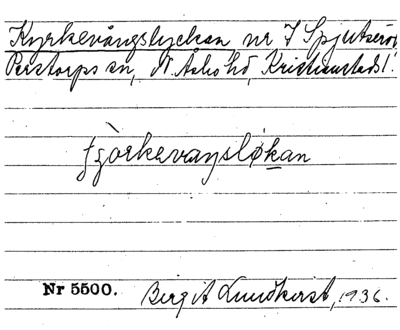 Kyrkevångslyckan, nr 7 Spjutseröd,
Perstorps sn, N. Åsbo hd, Kristianstads l.
Nr 5500. Birgit Lundkvist, 1936.